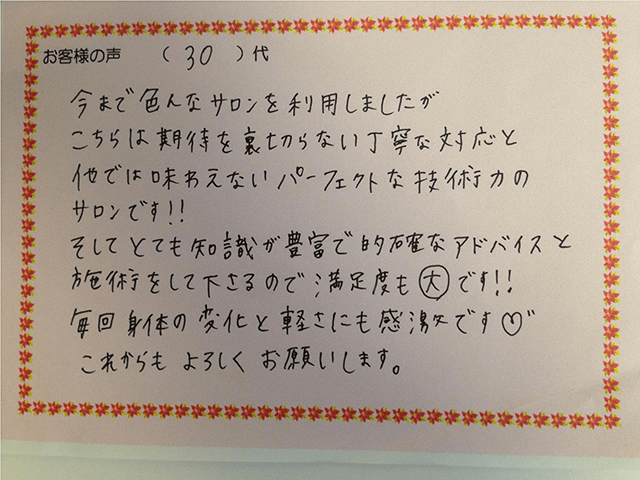 お客様の声 ( 30 ) 代
今まで色んなサロンを利用しましたが
こちらは期待を裏切らない丁寧な対応と
他では味わえないパーフェクトな技術力の
サロンです!!
そしてとても知識が豊富で的確なアドバイスと
施術をして下さるので満足度も大です!!
毎回身体の変化と軽さにも感激です♡"
これからもよろしくお願いします。